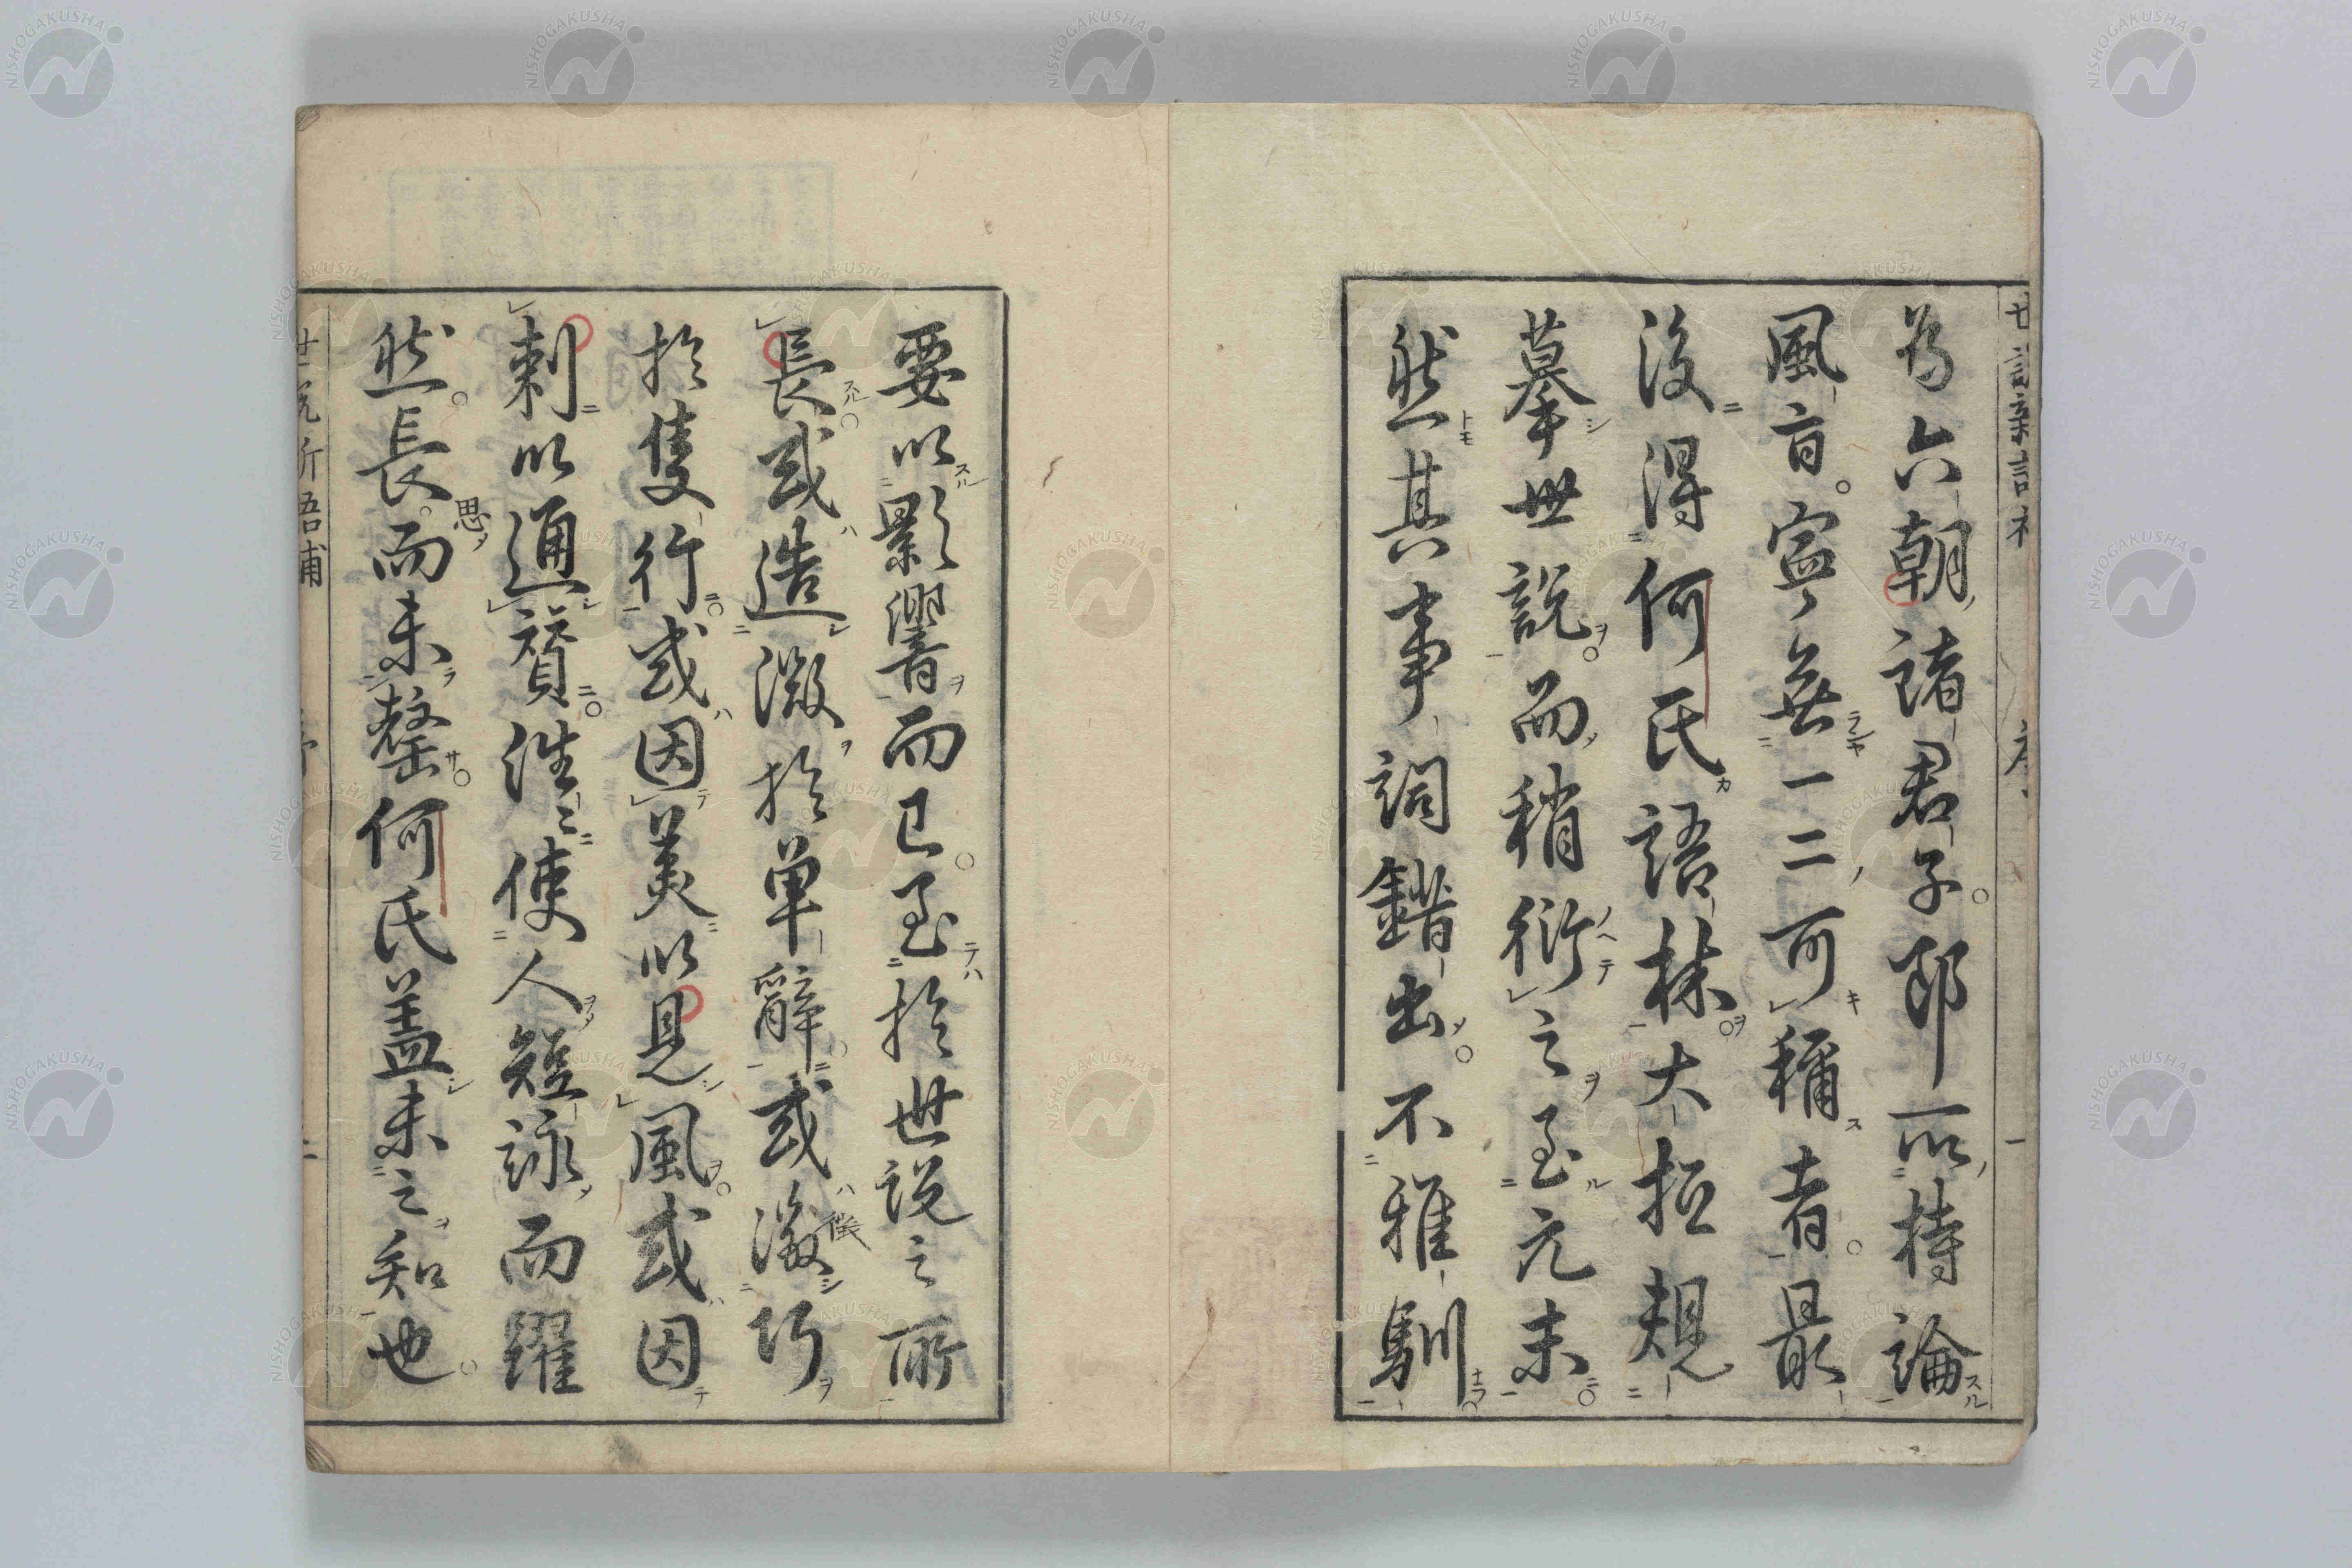 世説新語補 序 一
為六朝諸君子即所持論
風旨寧無一二可稱者最
後得何氏語林大抵規
摹世説而稍衍之至元末
然其事詞錯出不雅馴
要以影響而已至於世説之所
長或造溦於單辭或澂巧
徴
於隻行或因美以見風或因
刺以通贊往〻使人短詠而躍
然長而未罄何氏蓋未之知也
思
世説新語補 序 二
NISHOGAKUSHA